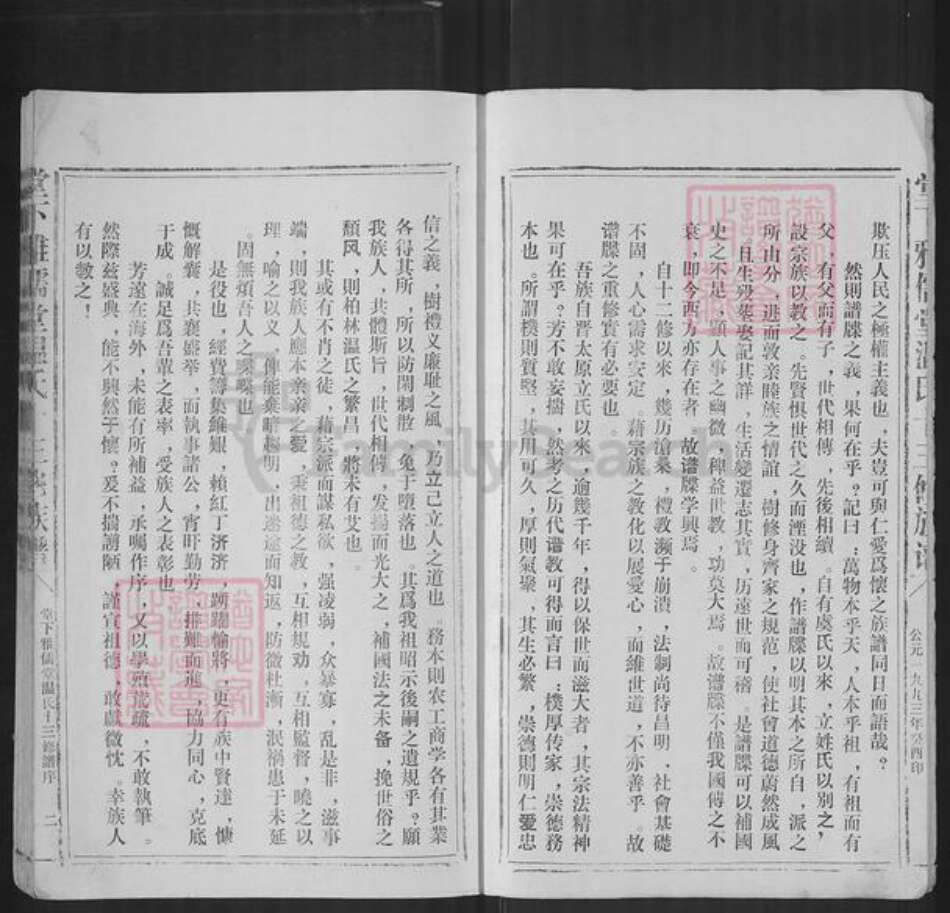 欺压人民之極權主義也，夫豈可與仁愛爲懷之族譜同日而語哉？
然則譜牒之義，果何在乎？記曰：萬物本乎天，人本乎祖，有祖而有
父，有父而有子，世代相傳，先後相續。自有虞氏以來，立姓氏以別之，
設宗族以教之。先賢惧世代之久而湮没也，作譜牒以明其本之所自，派之
所由分，進而敦亲睦族之情誼，樹修身齊家之規范，使社會道德蔚然成風
。且生殁葬娶記其詳，生活變遷志其實，历遠世而可稽。是譜牒可以補國
史之不足，顯人事之幽微，稗益世教，功莫大焉。故谱牒不僅我國傳之不
衰，即今西方亦存在者　故谱牒学興焉。
自十二修以來，幾历滄桑，禮教濒于崩潰，法制尚待昌明，社會基礎
不固，人心需求安定。藉宗族之教化以展愛心，而維世道，不亦善乎。故
谱牒之重修寔有必要也。
吾族自晋太原立氏以來，逾幾千年，得以保世而滋大者，其宗法精神
果可在乎？芳不敢妄揣，然考之历代谱教可得而言曰：樸厚传家，崇德務
本也。所謂樸則質堅，其用可久，厚則氣聚，其生必繁，崇德則明仁爱忠
公元一九九三年癸酉印
信之義，樹禮义廉耻之風，乃立己立人之道也。務本則农工商学各有其業
各得其所，所以防閑制散，免于墮落也。其爲我祖昭示後嗣之遺規乎？願
我族人，共體斯旨，世代相傳，发揚而光大之，補國法之未备，挽世俗之
頹风，則柏林温氏之繁昌，將未有艾也。
其或有不肖之徒，藉宗派而謀私欲，强凌弱，众暴寡，乱是非，滋事
端，則我族人應本亲亲之爱，秉祖德之教，互相規劝，互相監督，曉之以
理，喻之以义，俾能棄暗趨明，出迷途而知返，防微杜漸，泯禍患于未延
。固無煩吾人之喋喋也。
是役也，經費籌集維艱，賴紅丁济济，踴躍輸將，更有族中賢達，慷
慨解囊，共襄盛举，而執事諸公，宵旰勤劳，排難而進，協力同心，克底
于成。誠足爲吾輩之表率，受族人之表彰也。
芳遠在海外，未能有所補益，承囑作序，又以學殖荒疏，不敢執筆。
然際兹盛典，能不興然于懷？爰不揣謭陋　謹宣祖德，敢獻微忱。幸族人
有以教之！
堂下雅儒堂温氏十三修譜序　二
FamilySearch